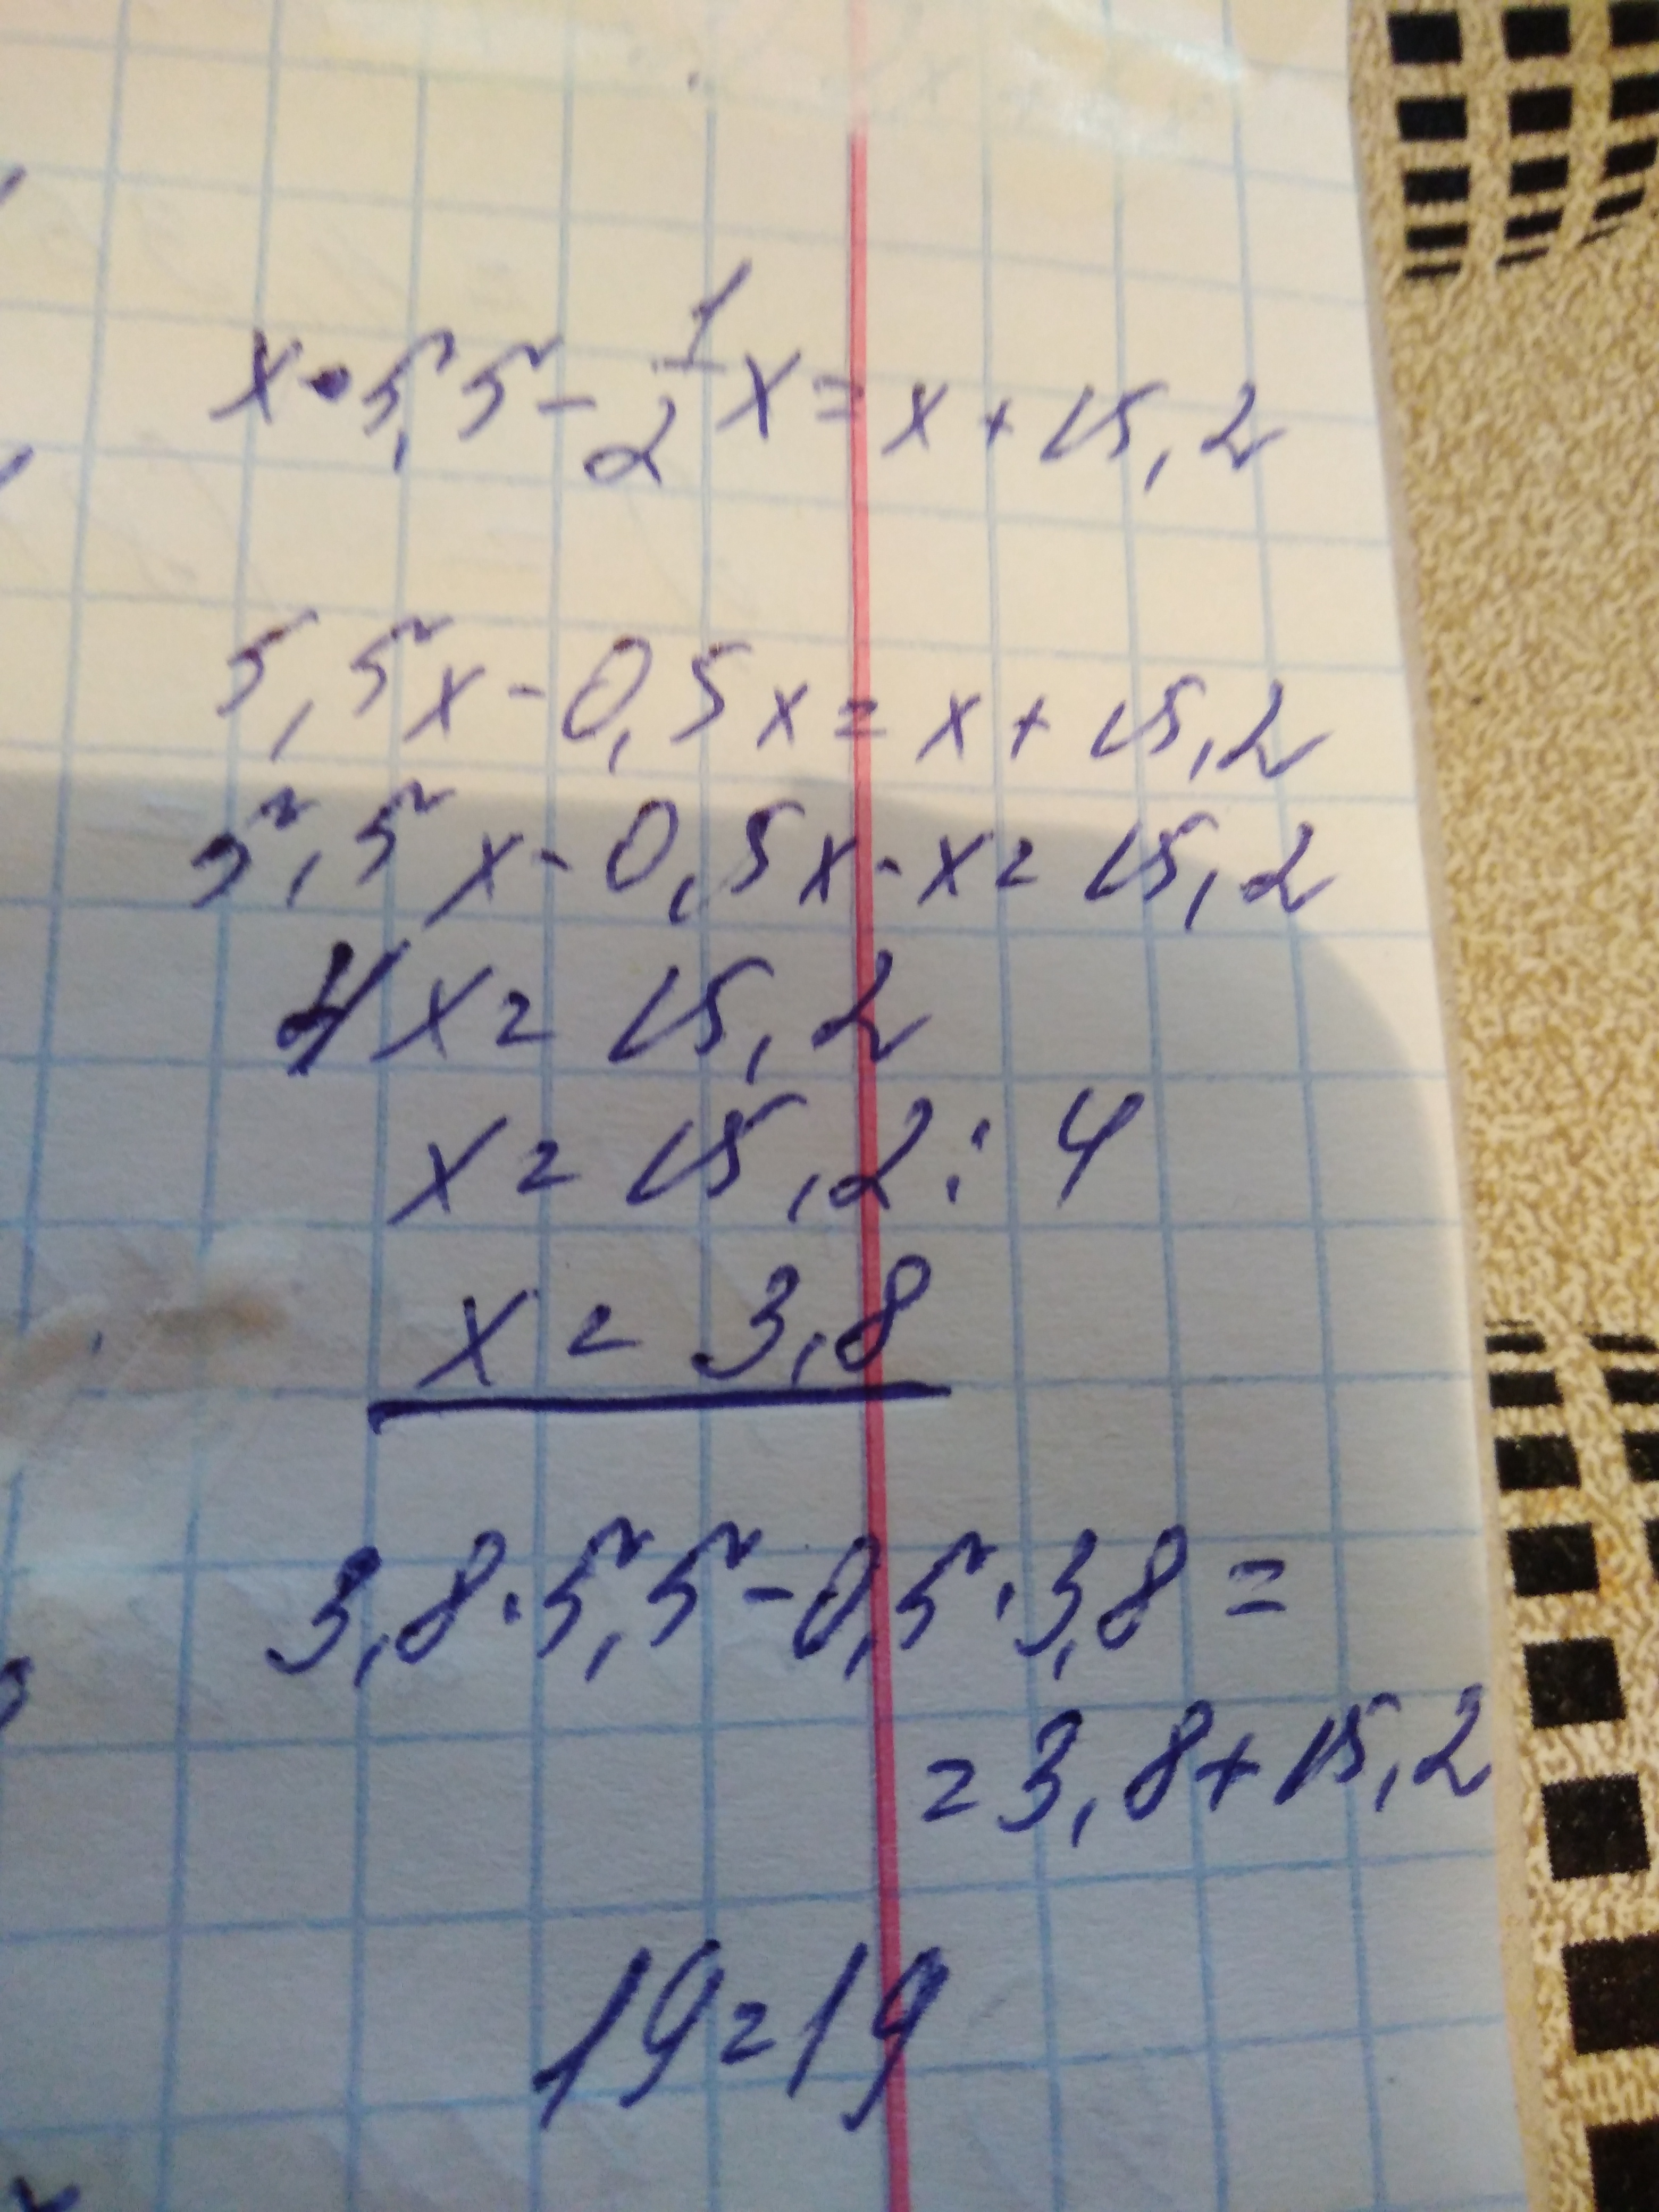 x·5,5-1/2x=x+15,2
5,5x-0,5x=x+15,2
5,5x-0,5x-x=15,2
4x=15,2
x=15,2:4
x=3,8
3,8·5,5-0,5·3,8=
=3,8+15,2
19=19